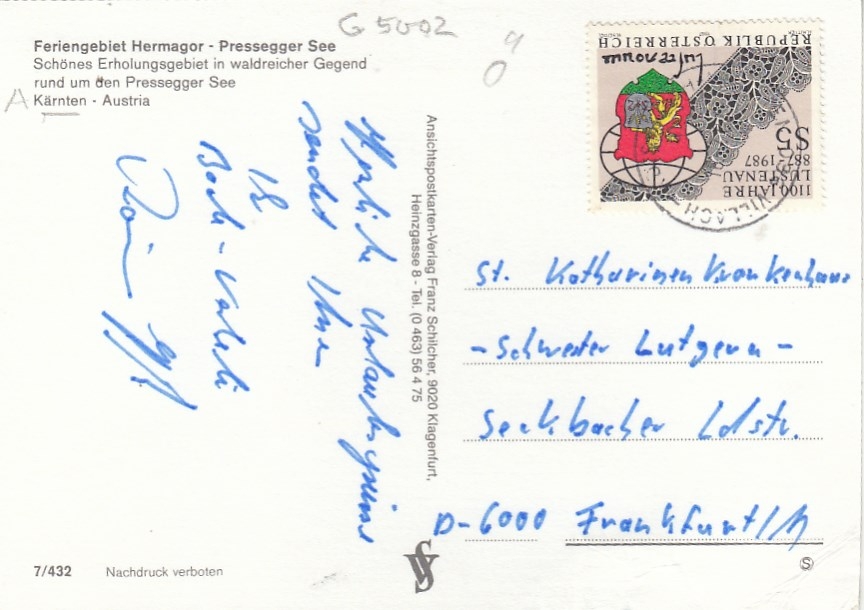 G 5002
9
0
Feriengebiet Hermagor - Pressegger See
Schönes Erholungsgebiet in waldreicher Gegend
rund um den Pressegger See
A Kärnten · Austria
Herzliche Urlaubsgrüsse
sendet Ihnen
Ihr
Ansichtspostkarten-Verlag Franz Schilcher, 9020 Klagenfurt,
Heinzgasse 8 - Tel. (0 463) 56 4 75
REPUBLIK ÖSTERREICH
1100 JAHRE
LUSTENAU
887-1987
S5
VILLACH
St. Katharinen Krankenhaus
- Schwester Lutgera -
Seckbacher Ldstr.
D-6000 Frankfurt/M
7/432 Nachdruck verboten
S